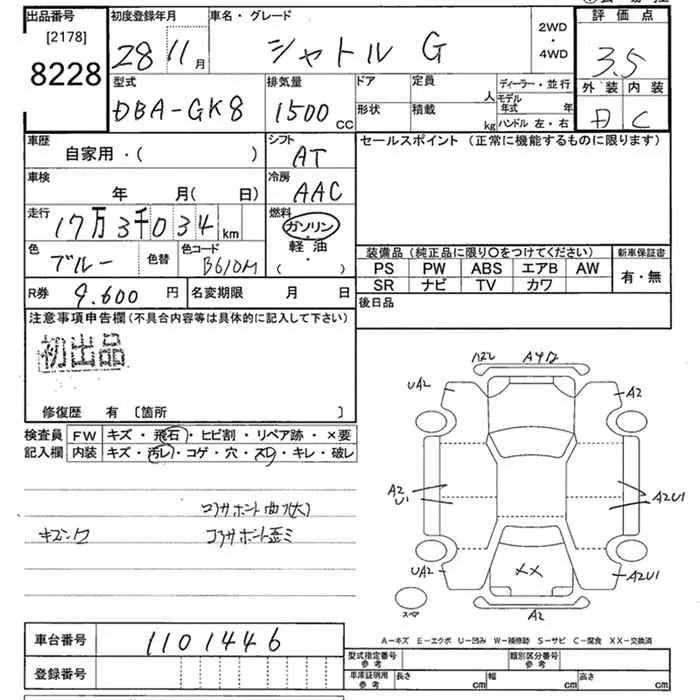 出品番号
[2178]
8228
初度登録年月
28 11 月
車名・グレード
シャトル G
2WD
・
4WD
評価点
3.5
外装 内装
C
型式
DBA-GK8
排気量
1500 CC
ドア
定員
人
形状
積載
kg
ディーラー・並行
モデル年式 年
ハンドル 左・右
車歴
自家用・( )
シフト
AT
セールスポイント (正常に機能するものに限ります)
車検
年 月( 日)
冷房
AAC
走行
17万3千034 km
燃料
ガソリン
軽・油
( ・ )
色
ブルー
色替
色コード
B610M
装備品 (純正品に限り○をつけてください)
PS PW ABS エアB AW
SR ナビ TV カワ
新車保証書
有・無
R券
9.600 円
名変期限 月 日
後日品
注意事項申告欄(不具合内容等は具体的に記入して下さい)
初出品
修復歴 有 〔箇所 〕
検査員
記入欄
FW キズ・飛石・ヒビ割・リペア跡・×要
内装 キズ・汚レ・コゲ・穴・スレ・キレ・破レ
コアサポート曲ガ(大)
コアサポート歪ミ
UA2
A2
A2
U1
A2U1
UA2
A2U1
××
スペア
A2
A-キズ E-エクボ U-凹み W-補修跡 S-サビ C-腐食 XX-交換済
車台番号
1101446
登録番号
型式指定番号
参考
類別区分番号
参考
車庫証明用
参考
長さ cm
幅 cm
高さ cm